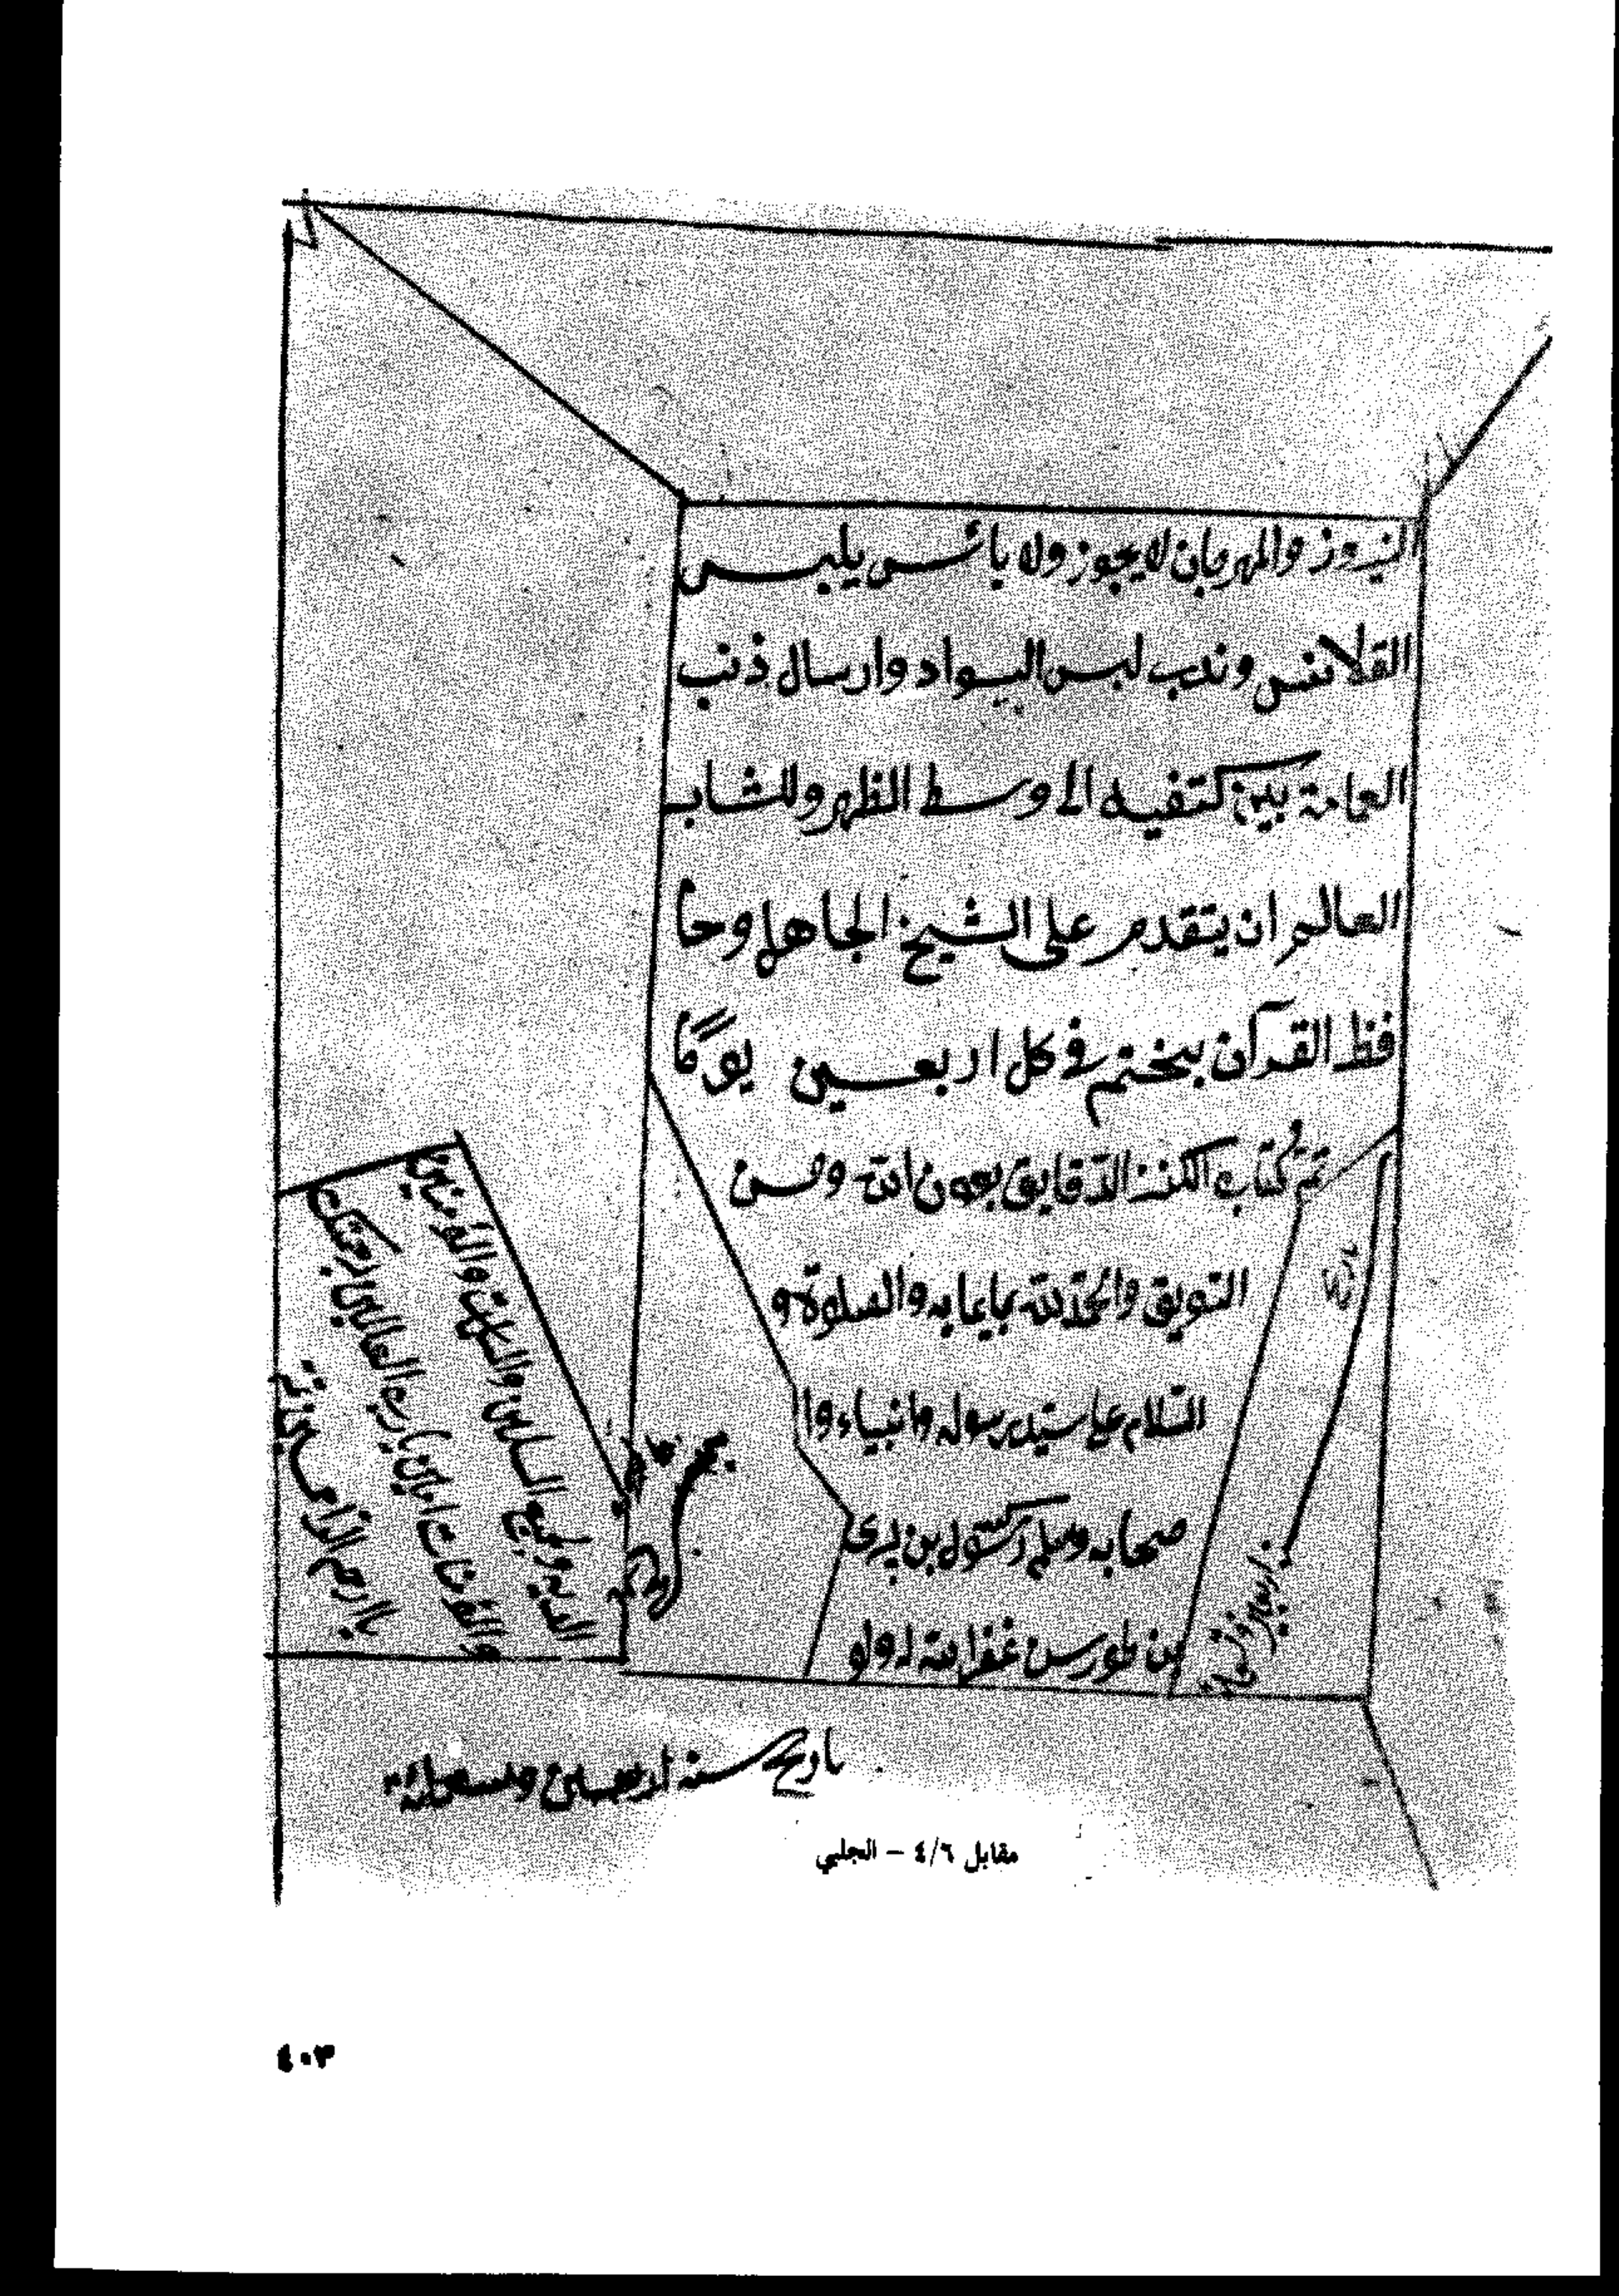 النيروز والمهرجان لا يجوز ولا بائس يلبس
القلانس وندب لبس السواد وارسال ذنب
العامة بين كتفيه الى وسط الظهر وللشاب
العالم ان يتقدم على الشيخ الجاهل وحا
فظ القرآن يختم في كل اربعين يومًا
تمت كتاب الكنز الدقايق بعون الله وحسن
التوفيق والحمد لله والصلوة و
السلام على سيد رسوله وانبياءه وا
صحابه وسلم بن پیری
بن طورسن غفر الله له ولو
الديه ولجميع المسلمين والمسلمات والمؤمنين
والمؤمنات امين يا رب العالمين برحمتك
يا ارحم الراحمين
تاريخ
اربعين وتسعمائة
تاريخ سنه اربعين وتسعمائة
مقابل ٤/٦ – الجلبي
٤٠٣